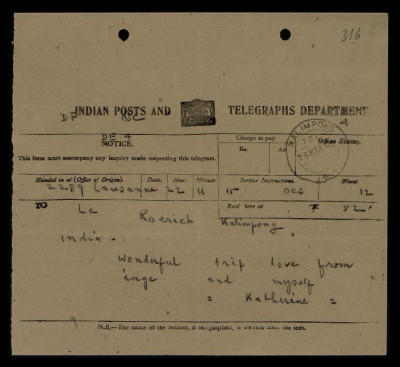 316
DF
INDIAN POSTS AND TELEGRAPHS DEPARTMENT
DE 4
NOTICE.
Charge to pay. Office Stamp.
Rs. As.
This form must accompany any inquiry made respecting this telegram.
KALIMPONG
Handed in at (Office of Origin). Date. Hour. Minute. Service Instructions. Words.
2289 Lausanne 22 15 OCS 12
TO Recd here at
Lc Roerich Kalimpong.
India.
Wonderful trip love from
inge and myself
= Katherine =
N.B.—The name of the Sender, if telegraphed, is written after the text.